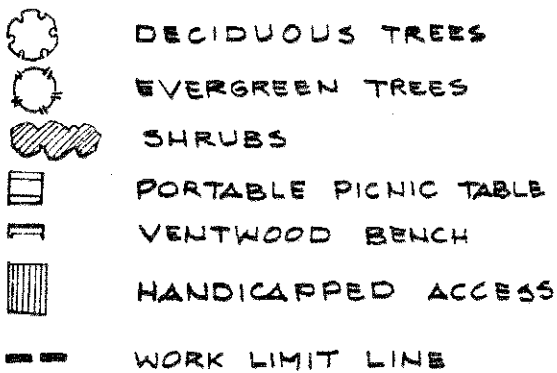 DECIDUOUS TREES
EVERGREEN TREES
SHRUBS
PORTABLE PICNIC TABLE
VENTWOOD BENCH
HANDICAPPED ACCESS
WORK LIMIT LINE